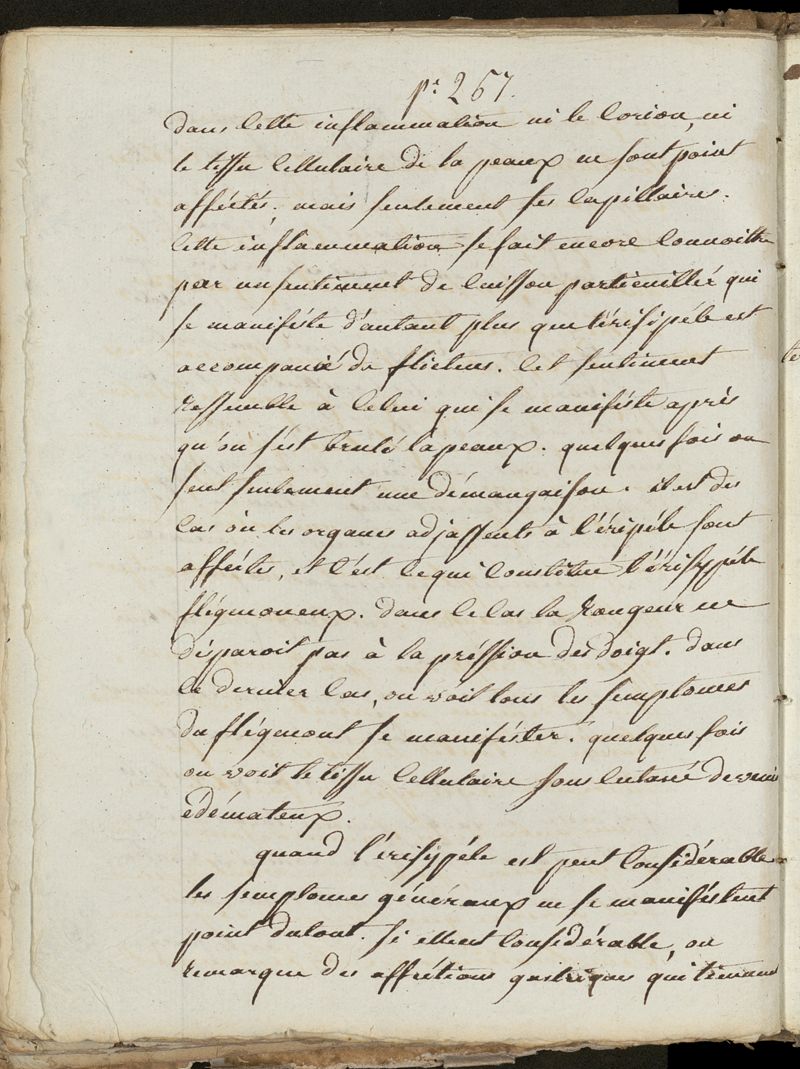 p.e 267.
dans cette inflammation ni le Corion, ni
le tissu Cellulaire de la peaux ne sont point
affectés, mais seulement ses Capillaires.
Cette inflammation se fait encore Connoitre
par un sentiment de Cuisson particuillér qui
se manifeste d'autant plus que l'érisipéle est
accompanié de flictens. Cet sentiment
ressemble à Celui qui se manifeste après
qu'on s'est brulé la peaux. quelques fois on
sent seulement une démangaison. il est des
Cas òu les organes adjassents à l'éripéle sont
affectés, et C'est Ce qui Constitue l'érisypéle
flégmoneux. dans Ce Cas la Rougeur ne
disparoit pas à la préssion des doigt. dans
Ce dernier Cas, on voit tous les semptomes
du flégmont se maniféster. quelques fois
on voit le tissu Cellulaire sous Cutané devenir
édémateux.
quand l'érisypéle est peut Considérable
les semptomes généraux ne se manifestent
point du tout. si elle est Considérable, on
remarque des afféctions gastriques qui tiennent